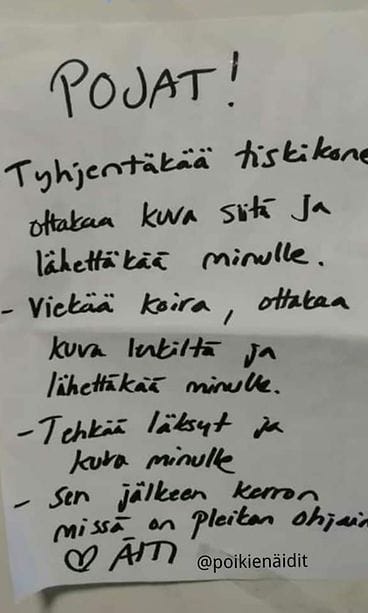 POJAT!
Tyhjentäkää tiskikone
ottakaa kuva siitä ja
lähettäkää minulle.
- Viekää koira, ottakaa
kuva lenkiltä ja
lähettäkää minulle.
- Tehkää läksyt ja
kuva minulle
- Sen jälkeen kerron
missä on pleikan ohjain
♡ ÄITI
@poikienäidit